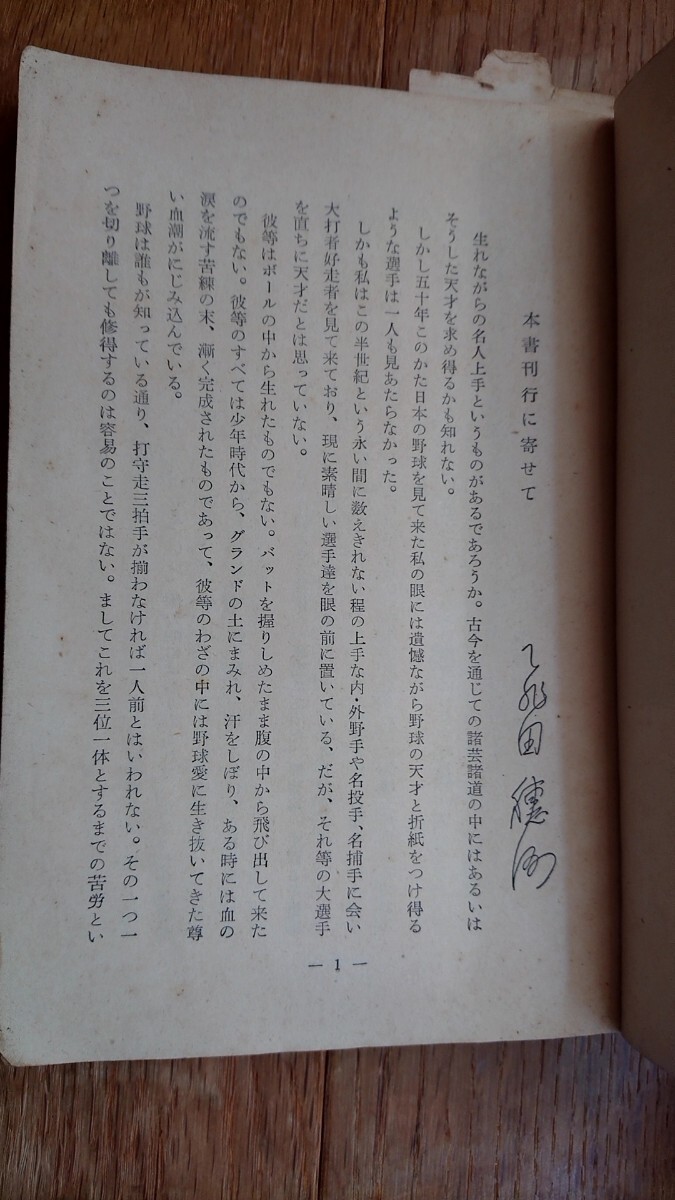 本書刊行に寄せて
飛田穂洲
生れながらの名人上手というものがあるであろうか。古今を通じての諸芸諸道の中にはあるいは
そうした天才を求め得るかも知れない。
しかし五十年このかた日本の野球を見て来た私の眼には遺憾ながら野球の天才と折紙をつけ得る
ような選手は一人も見あたらなかった。
しかも私はこの半世紀という永い間に数えきれない程の上手な内・外野手や名投手、名捕手に会い
大打者好走者を見て来ており、現に素晴しい選手達を眼の前に置いている、だが、それ等の大選手
を直ちに天才だとは思っていない。
彼等はボールの中から生れたものでもない。バットを握りしめたまま腹の中から飛び出して来た
のでもない。彼等のすべては少年時代から、グランドの土にまみれ、汗をしぼり、ある時には血の
涙を流す苦練の末、漸く完成されたものであって、彼等のわざの中には野球愛に生き抜いてきた尊
い血潮がにじみ込んでいる。
野球は誰もが知っている通り、打守走三拍手が揃わなければ一人前とはいわれない。その一つ一
つを切り離しても修得するのは容易のことではない。ましてこれを三位一体とするまでの苦労とい
— 1 —